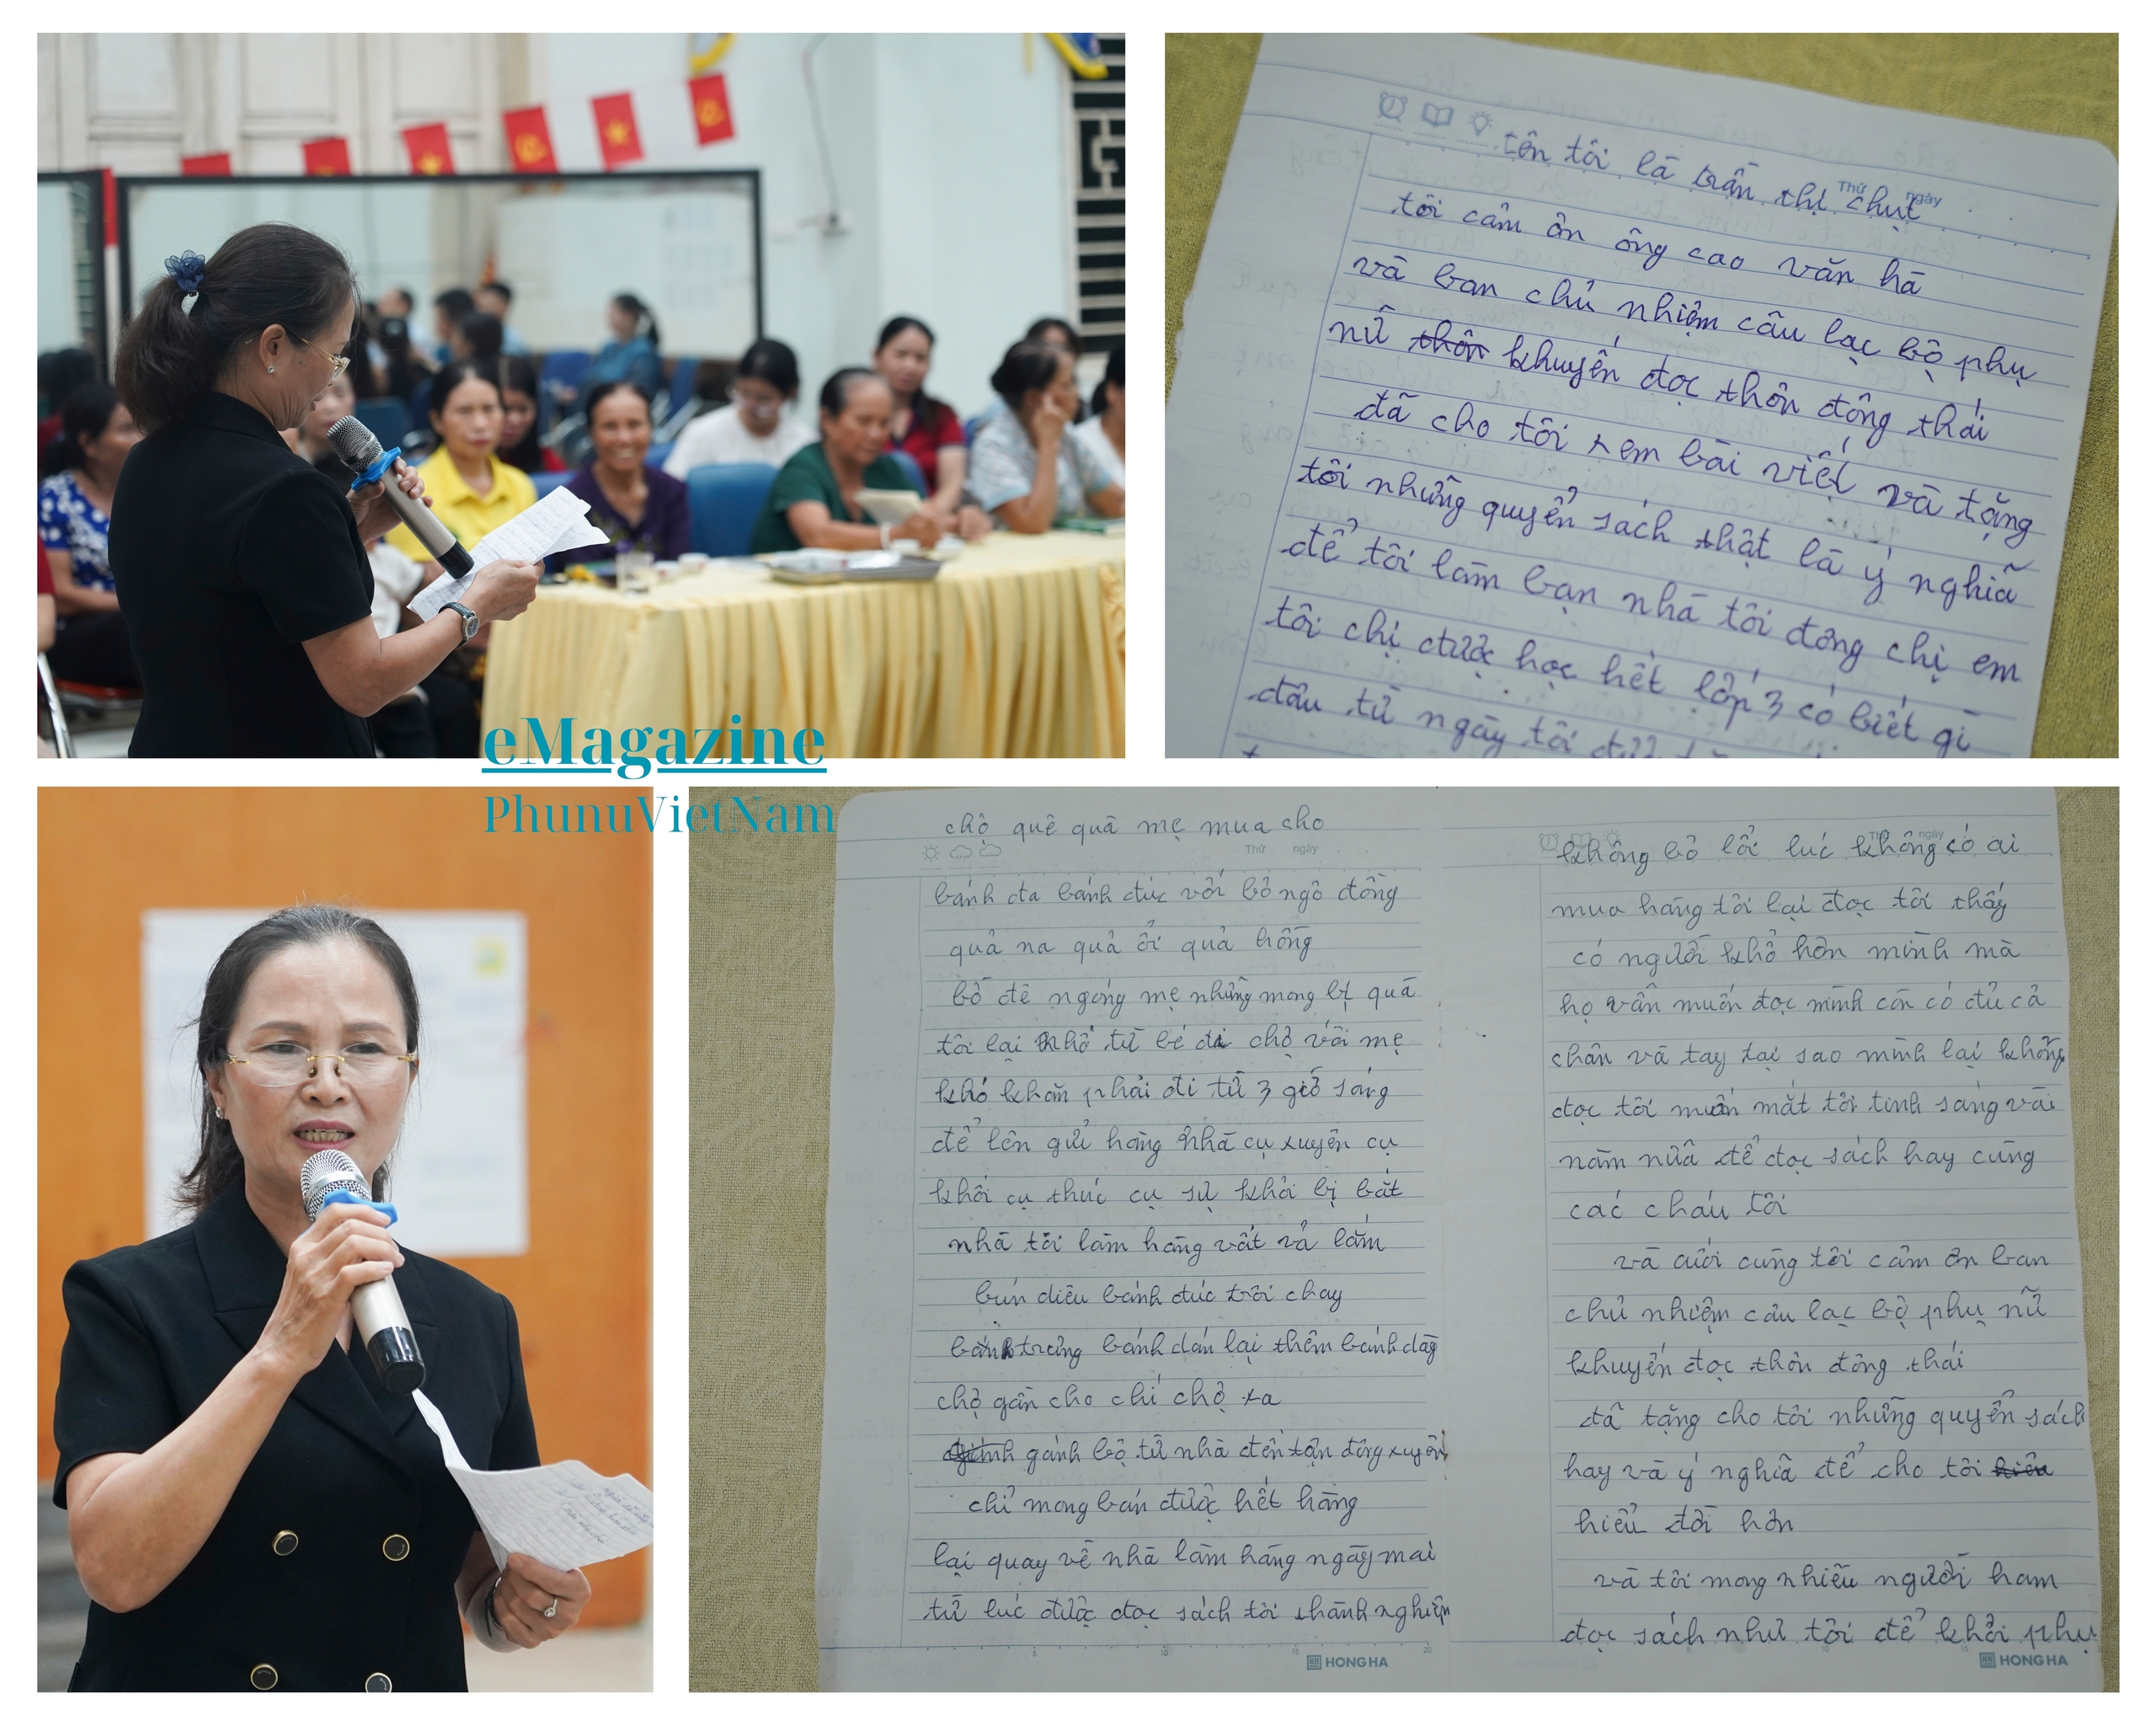 Thứ ngày
tôn tôi là trần thị chụt
tôi cảm ơn ông cao văn hà
và ban chủ nhiệm câu lạc bộ phụ
nữ thôn khuyến đọc thôn đông thái
đã cho tôi xem bài viết và tặng
tôi những quyển sách thật là ý nghĩa
để tôi làm bạn nhà tôi đông chị em
tôi chị được học hết lớp 3 có biết gì
đâu từ ngày tôi
eMagazine
PhunuVietNam
chợ quê quà mẹ mua cho
Thứ ngày
bánh đa bánh đúc với bỏ ngô đồng
quả na quả ổi quả hồng
bố đê ngóng mẹ những mong lị quà
tôi lại nhớ từ bé đi chợ với mẹ
khó khăn phải đi từ 3 giờ sáng
để lên gửi hàng nhà cụ xuyên cụ
khôi cụ thức cụ sử khỏi bị bắt
nhà tôi làm hàng vất vả lắm
bún diêu bánh đúc trôi chay
bánh trưng bánh dán lại thêm bánh dầy
chợ gần cho chí chợ xa
gánh bộ từ nhà đến tận đồng xuyên
chỉ mong bán được hết hàng
lại quay về nhà làm hàng ngày mai
từ lúc được đọc sách tôi thành nghiện
HONG HA
ngày
không bỏ lỗi lúc không có ai
mua hàng tôi lại đọc tôi thấy
có người khổ hơn mình mà
họ vẫn muốn đọc mình còn có đủ cả
chân và tay tại sao mình lại không
đọc tôi muốn mắt tôi tinh sáng vài
năm nữa để đọc sách hay cùng
các cháu tôi
và cuối cùng tôi cảm ơn ban
chủ nhiệm câu lạc bộ phụ nữ
khuyến đọc thôn đông thái
đã tặng cho tôi những quyển sách
hay và ý nghĩa để cho tôi hiên
hiểu đời hơn
và tôi mong nhiều người ham
đọc sách như tôi để khỏi phụ
HONG HA